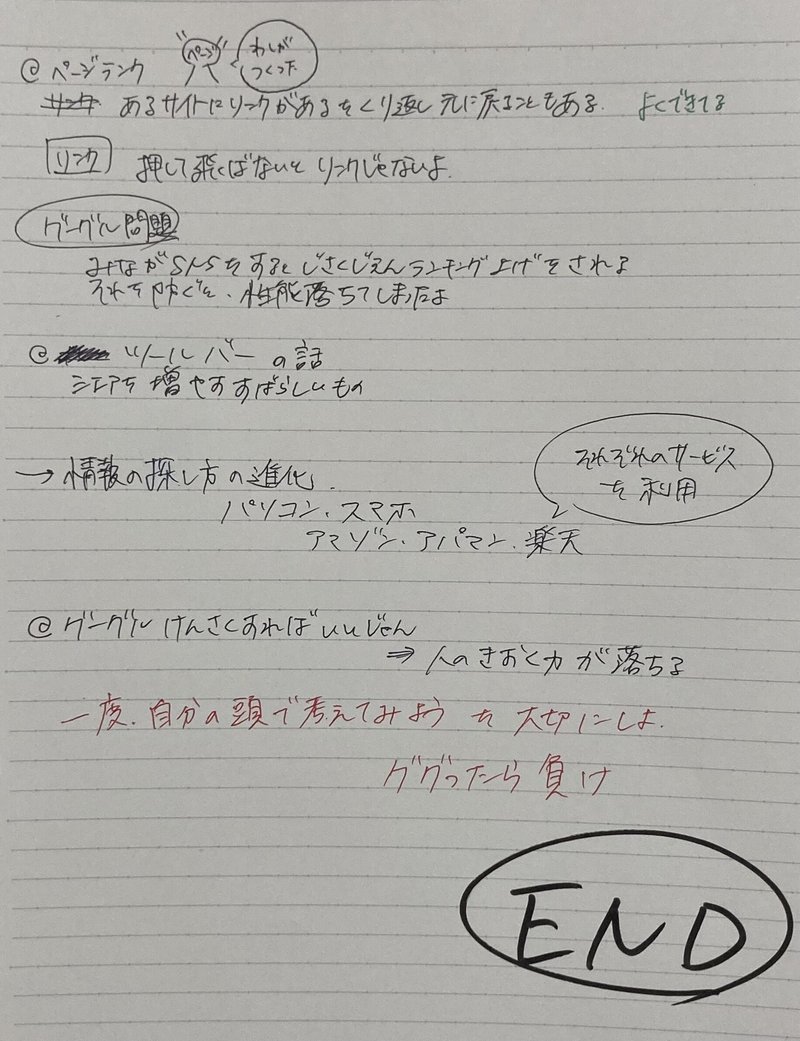 @ ページランク
ページ
わしが
つくった
あるサイトにリンクがあるをくり返し 元に戻ることもある. よくできてる
リンク 押して飛ばないとリンクじゃないよ.
グーグル問題
みながSNSをするとじさくじえんランキング上げをされる
それを防ぐと、性能落ちてしまったよ
@ ツールバーの話
シェアを増やすすばらしいもの
→情報の探し方の進化.
パソコン・スマホ
アマゾン・アパマン・楽天
それぞれのサービス
を利用
@ グーグルけんさくすればいいじゃん
⇒ 人のきおく力が落ちる
一度.自分の頭で考えてみようを大切にしよ.
ググったら負け
END